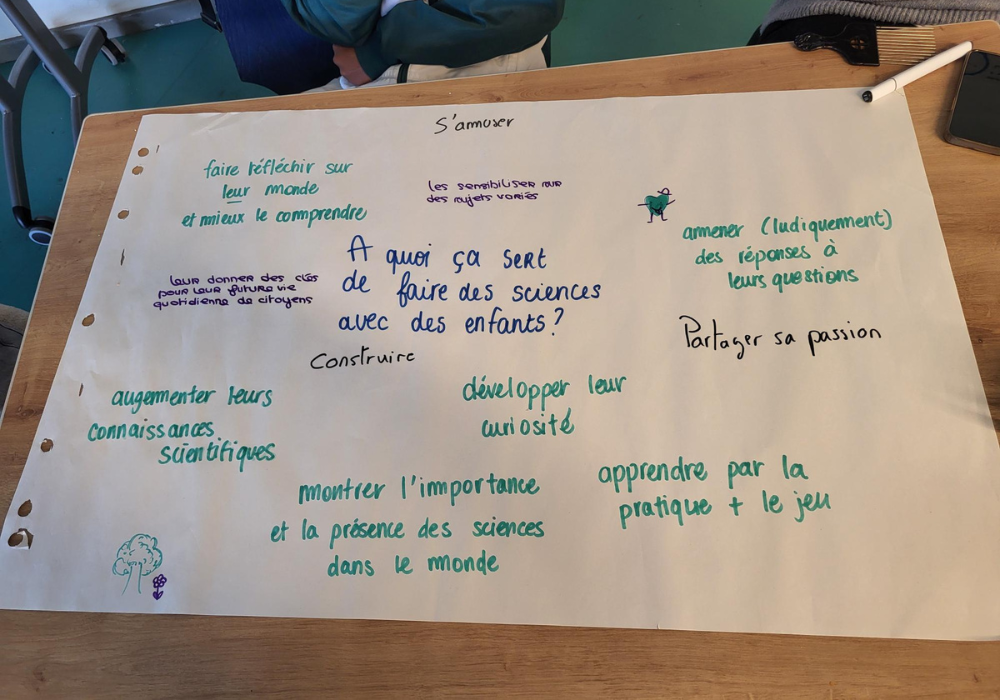 S'amuser
faire réfléchir sur
leur monde
et mieux le comprendre
les sensibiliser sur
des sujets variés
amener (ludiquement)
des réponses à
leurs questions
A quoi ça sert
de faire des sciences
avec des enfants?
leur donner des clés
pour leur future vie
quotidienne de citoyens
Partager sa passion
Construire
augmenter leurs
connaissances
scientifiques
développer leur
curiosité
montrer l'importance
et la présence des sciences
dans le monde
apprendre par la
pratique + le jeu